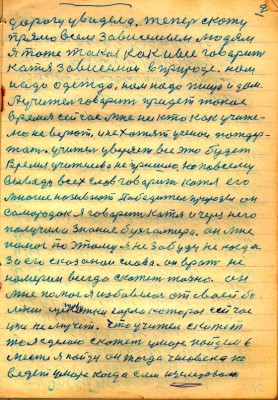 2
дорогу увидела, теперь скажу
прямо всем зависимым людям
я тоже такая как и все говорит
катя зависемои в природе. нам
надо одежда, нам надо пища и дом.
А учител говорит придет такое
время сейчас мне не кто как учите-
лю не верют, и не хотят учению поддер-
жат. учител уверяет все это будет
Время учителя не пришло, но повсему
выходу всех слов говорит катя его
многие называют Победител природы он
самородок я говорит катя и через него
получила знание бухгалтера. он мне
помог по этому я не забуду не когда
за его сказаном слова. он врат не
намерин всегда скажет точно. он
мне помог я избавилас от своей бо-
лезни горла которая сейчас
уже не мучет. что учител скажет
то я делаю скажет умират пойдем в
месте я пойду он тогда человека не
ведет умират когда сам